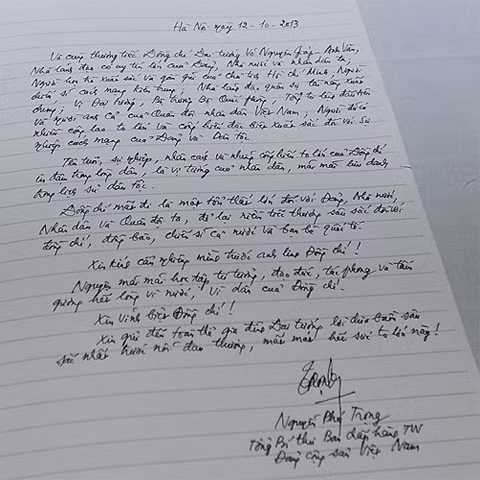 Hà Nội ngày 12-10-2013
Vô cùng thương tiếc Đồng chí Đại tướng Võ Nguyên Giáp - Anh Văn,
Nhà lãnh đạo có uy tín lớn của Đảng, Nhà nước và nhân dân ta,
Người học trò xuất sắc và gần gũi của Chủ tịch Hồ Chí Minh, Người
chiến sĩ cách mạng kiên trung; Nhà lãnh đạo quân sự tài năng xuất
chúng; Vị Đại tướng, Bộ trưởng Bộ Quốc phòng, Tổng Tư lệnh đầu tiên
và Người anh cả của Quân đội nhân dân Việt Nam; Người đã có
nhiều công lao to lớn và cống hiến đặc biệt xuất sắc đối với sự
nghiệp cách mạng của Đảng và Dân tộc.
Tên tuổi, sự nghiệp, nhân cách và những cống hiến to lớn của Đồng chí
in đậm trong lòng dân, là vị tướng của nhân dân, mãi mãi lưu danh
trong lịch sử dân tộc.
Đồng chí mất đi là một tổn thất lớn đối với Đảng, Nhà nước,
Nhân dân và Quân đội ta, để lại niềm tiếc thương sâu sắc đối với
đồng chí, đồng bào, chiến sĩ cả nước và bạn bè quốc tế.
Xin kính cẩn nghiêng mình trước anh linh Đồng chí!
Nguyện mãi mãi học tập tư tưởng, đạo đức, tác phong và tấm
gương hết lòng vì nước, vì dân của Đồng chí.
Xin vĩnh biệt Đồng chí!
Xin gửi đến toàn thể gia đình Đại tướng lời chia buồn sâu
sắc nhất trước nỗi đau thương, mất mát hết sức to lớn này!
Nguyễn Phú Trọng
Tổng Bí thư Ban Chấp hành TW
Đảng cộng sản Việt Nam